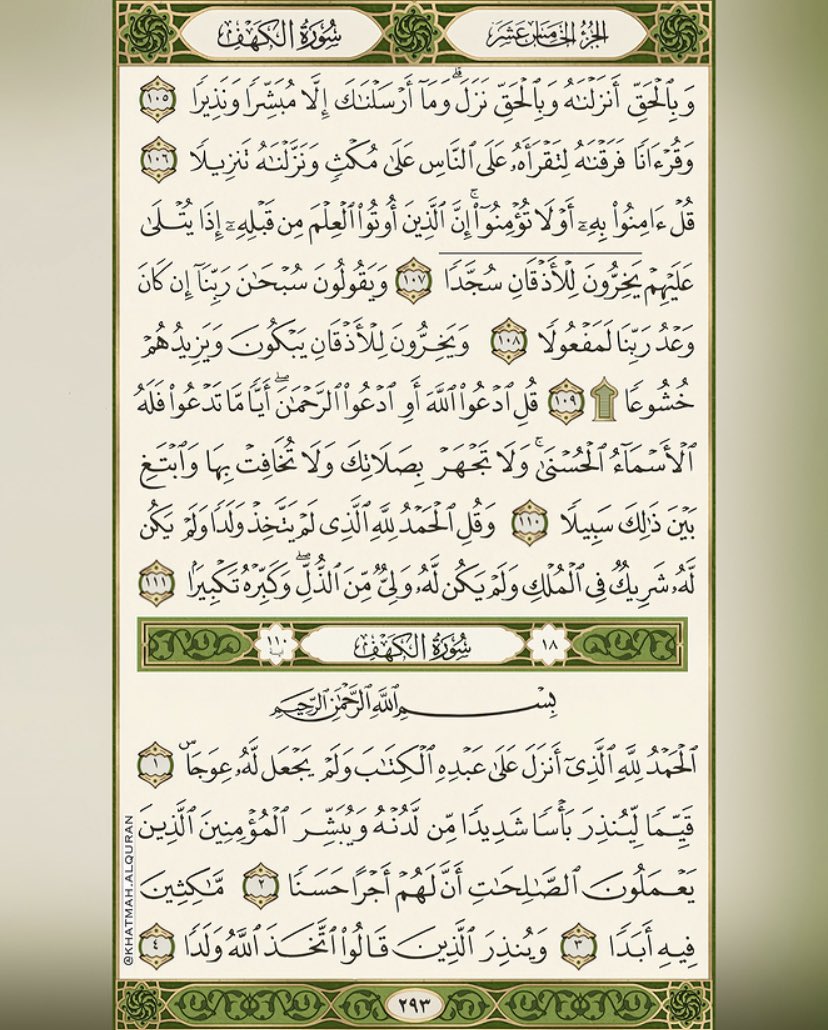 الجزء الخامس عشر
سورة الكهف
وَبِٱلْحَقِّ أَنزَلْنَـٰهُ وَبِٱلْحَقِّ نَزَلَ ۗ وَمَآ أَرْسَلْنَـٰكَ إِلَّا مُبَشِّرًا وَنَذِيرًا ١٠٥
وَقُرْءَانًا فَرَقْنَـٰهُ لِتَقْرَأَهُۥ عَلَى ٱلنَّاسِ عَلَىٰ مُكْثٍ وَنَزَّلْنَـٰهُ تَنزِيلًا ١٠٦
قُلْ ءَامِنُوا۟ بِهِۦٓ أَوْ لَا تُؤْمِنُوٓا۟ ۚ إِنَّ ٱلَّذِينَ أُوتُوا۟ ٱلْعِلْمَ مِن قَبْلِهِۦٓ إِذَا يُتْلَىٰ
عَلَيْهِمْ يَخِرُّونَ لِلْأَذْقَانِ سُجَّدًا ١٠٧ وَيَقُولُونَ سُبْحَـٰنَ رَبِّنَآ إِن كَانَ
وَعْدُ رَبِّنَا لَمَفْعُولًا ١٠٨ وَيَخِرُّونَ لِلْأَذْقَانِ يَبْكُونَ وَيَزِيدُهُمْ
خُشُوعًا ۩ ١٠٩ قُلِ ٱدْعُوا۟ ٱللَّهَ أَوِ ٱدْعُوا۟ ٱلرَّحْمَـٰنَ ۖ أَيًّا مَّا تَدْعُوا۟ فَلَهُ
ٱلْأَسْمَآءُ ٱلْحُسْنَىٰ ۚ وَلَا تَجْهَرْ بِصَلَاتِكَ وَلَا تُخَافِتْ بِهَا وَٱبْتَغِ
بَيْنَ ذَٰلِكَ سَبِيلًا ١١٠ وَقُلِ ٱلْحَمْدُ لِلَّهِ ٱلَّذِى لَمْ يَتَّخِذْ وَلَدًا وَلَمْ يَكُن
لَّهُۥ شَرِيكٌ فِى ٱلْمُلْكِ وَلَمْ يَكُن لَّهُۥ وَلِىٌّ مِّنَ ٱلذُّلِّ ۖ وَكَبِّرْهُ تَكْبِيرًۢا ١١١
١٨ سورة الكهف ١١٠ آية
بِسْمِ ٱللَّهِ ٱلرَّحْمَـٰنِ ٱلرَّحِيمِ
ٱلْحَمْدُ لِلَّهِ ٱلَّذِىٓ أَنزَلَ عَلَىٰ عَبْدِهِ ٱلْكِتَـٰبَ وَلَمْ يَجْعَل لَّهُۥ عِوَجَا ۜ ١
قَيِّمًا لِّيُنذِرَ بَأْسًا شَدِيدًا مِّن لَّدُنْهُ وَيُبَشِّرَ ٱلْمُؤْمِنِينَ ٱلَّذِينَ
يَعْمَلُونَ ٱلصَّـٰلِحَـٰتِ أَنَّ لَهُمْ أَجْرًا حَسَنًا ٢ مَّـٰكِثِينَ
فِيهِ أَبَدًا ٣ وَيُنذِرَ ٱلَّذِينَ قَالُوا۟ ٱتَّخَذَ ٱللَّهُ وَلَدًا ٤
٢٩٣
@KHATMAH.ALQURAN